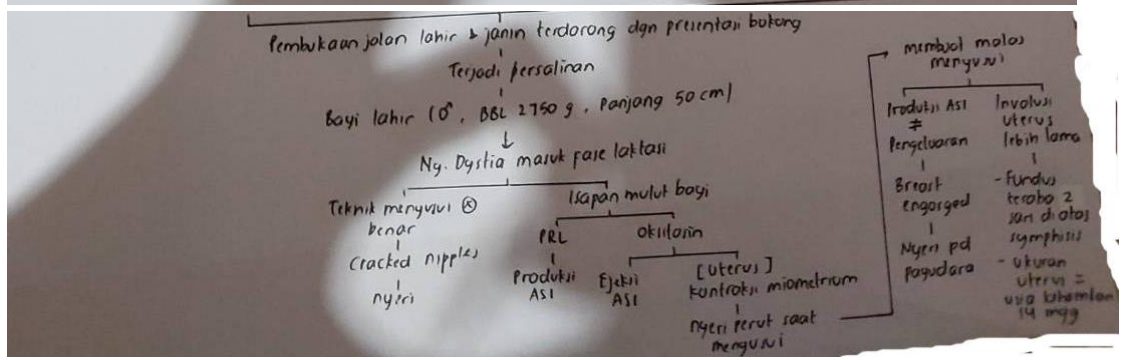 Pembukaan jalan lahir & janin terdorong dgn presentasi bokong
Terjadi persalinan
Bayi lahir (♂, BBL 2750 g, Panjang 50 cm)
Ny. Dystia masuk fase laktasi
Teknik menyusui ⊗
benar
Cracked nipples
nyeri
Isapan mulut bayi
PRL
Produksi
ASI
Oksitosin
Ejeksi
ASI
[Uterus]
Kontraksi miometrium
nyeri perut saat
menyusui
membuat malas
menyusui
Produksi ASI
≠
Pengeluaran
Breast
engorged
Nyeri pd
payudara
Involusi
uterus
lebih lama
- Fundus
teraba 2
jari diatas
symphisis
- ukuran
uterus =
usia kehamilan
14 mgg